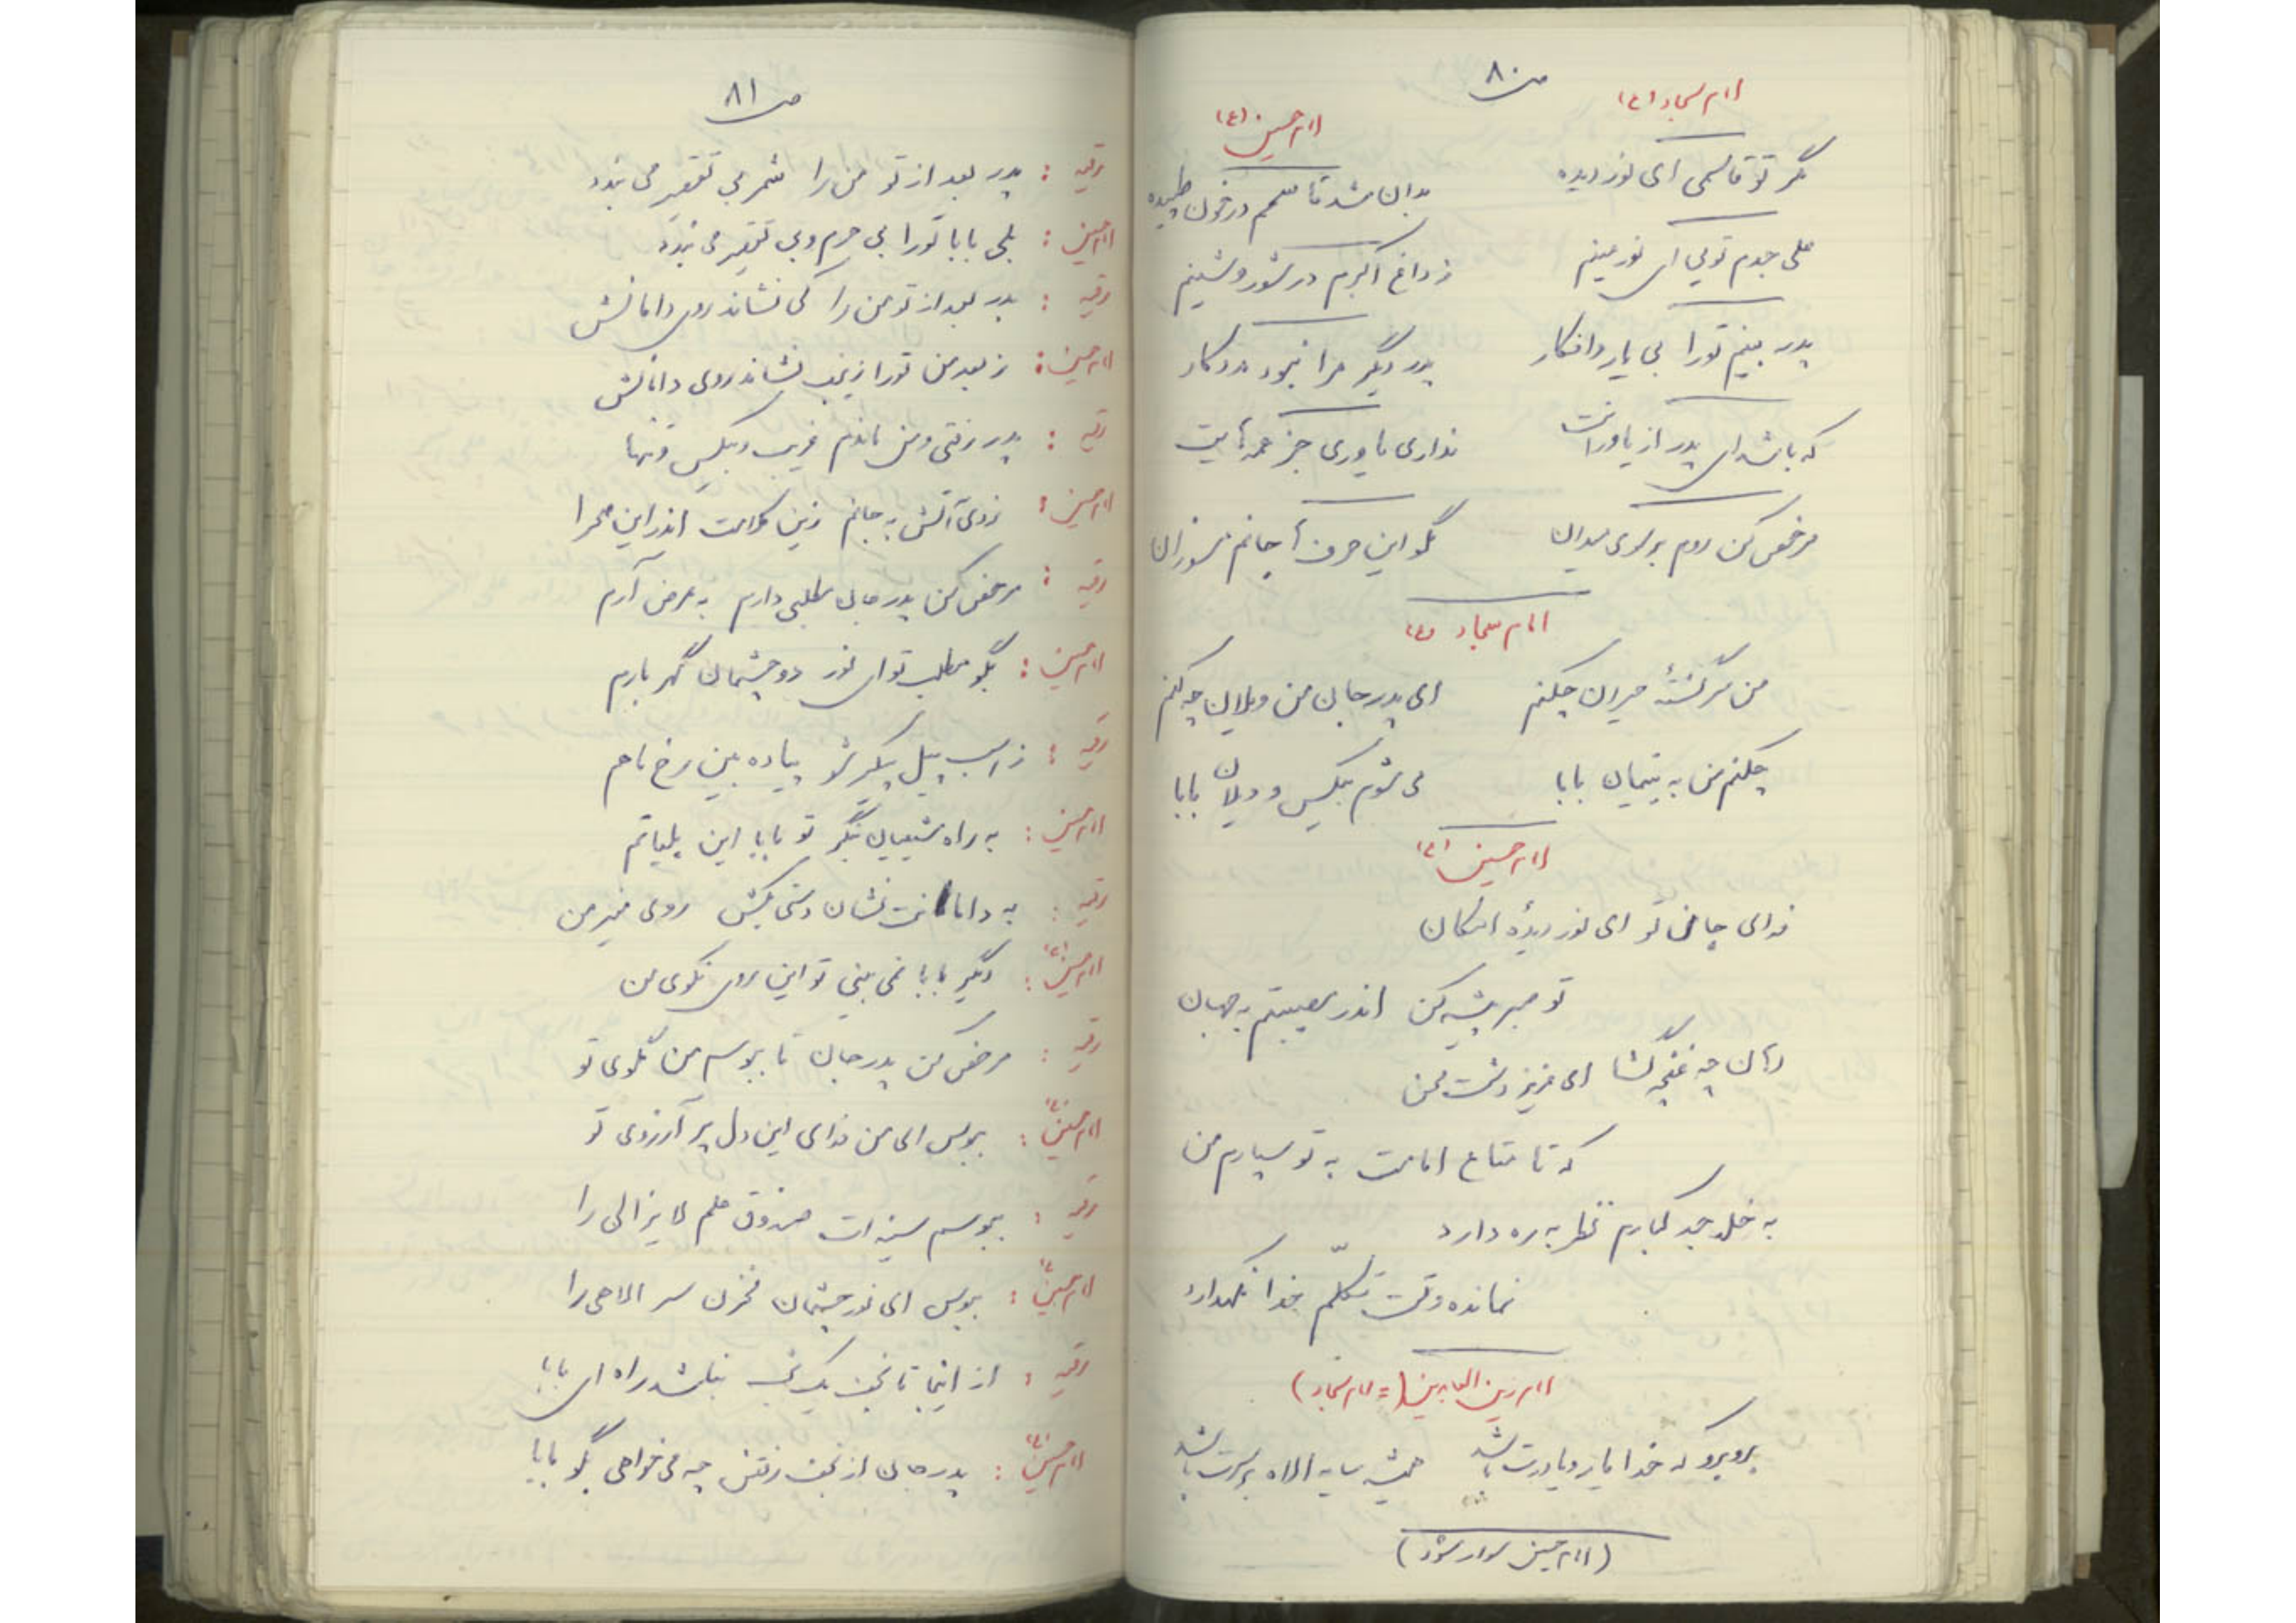 ص ۸۰
امام سجاد (ع)
امام حسین (ع)
مگر تو قاسمی ای نور دیده
بدان شد قاسمم در خون طپیده
علی جدم تویی ای نور عینم
ز داغ اکبرم در شور و شینم
پدر بینم تورا بی یار و افکار
پدر دیگر مرا نبود مددکار
که باشد ای پدر از یاورانت
نداری یاوری جز عمه هایت
مرخص کن روم بر سوی میدان
مگو این حرف ها جانم مسوزان
امام سجاد (ع)
من سرگشتهٔ حیران چکنم
ای پدر جان من ویلان چه کنم
چکنم من به یتیمان بابا
می شوم بیکس و ویلان بابا
امام حسین (ع)
فدای جان تو ای نور دیدهٔ امکان
تو صبر پیشه کن اندر مصیبتم به جهان
دهان چه غنچه گشا ای عزیز دشت محن
که تا متاع امامت به تو سپارم من
به خلد جد کبارم نظر به ره دارد
نمانده وقت تکلّم خدا نگهدارد
امام زین العابدین (= امام سجاد)
برو برو که خدا یار و یاورت باشد
همیشه سایه الاه بر سرت باشد
(امام حسین سوار شود)
ص ۸۱
رقیه : پدر بعد از تو من را شمر بی تقصیر می بندد
امام حسین : بلی بابا تورا بی جرم و بی تقصیر می بندد
رقیه : پدر بعد از تو من را کی نشاند روی دامانش
امام حسین : ز بعد من تورا زینب نشاند روی دامانش
رقیه : پدر رفتی و من ماندم غریب و بیکس و تنها
امام حسین : زدی آتش به جانم زین کلامت اندر این صحرا
رقیه : مرخص کن پدر جان مطلبی دارم به عرض آرم
امام حسین : بگو مطلب تو ای نور دو چشمان گهر بارم
رقیه : ز اسب پیل پیکر شو پیاده بین رخ ماهم
امام حسین : به راه شیعیان بنگر تو بابا این
رقیه : به دامانت نشان دستی بکش روی من
امام حسین (ع) : دگر بابا نمی بینی تو این روی نکوی من
رقیه : مرخص کن پدر جان تا ببوسم من گلوی تو
امام حسین (ع) : ببوس ای من فدای این دل پر آرزوی تو
رقیه : ببوسم سینه ات صندوق علم لایزالی را
امام حسین (ع) : ببوس ای نور چشمان مخزن سر الاهی را
رقیه : از اینجا تا نجف یک شب نباشد راه ای بابا
امام حسین (ع) : پدر جان از نجف رفتن چه می خواهی بگو بابا